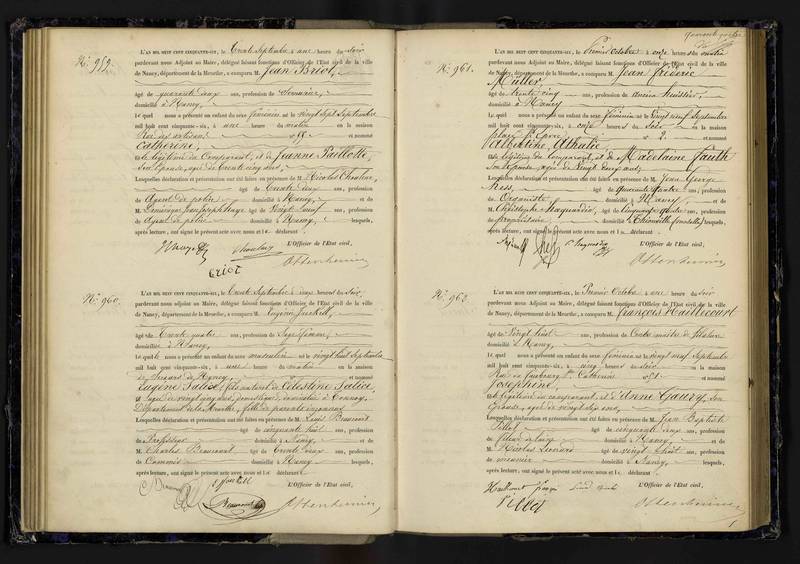 N.° 959.
L'AN MIL HUIT CENT CINQUANTE-SIX, le trente Septembre à une heure du Soir
pardevant nous Adjoint au Maire, délégué faisant fonctions d'Officier de l'Etat civil de la ville
de Nancy, département de la Meurthe, a comparu M. Jean Briot,
âgé de quarante deux ans, profession de
domicilié à Nancy,
Lequel nous a présenté un enfant du sexe féminin né le vingt sept Septembre
mil huit cent cinquante-six, à une heure du matin en la maison
Rue des artisans n° 19 et nommé
Catherine,
fille légitime du Comparant, et de Jeanne Paillotte,
Son Epouse, agée de trente cinq ans,
Lesquelles déclaration et présentation ont été faites en présence de M. Nicolas
âgé de trente deux ans, profession
de Agent de police domicilié à Nancy, et de
M. âgé de vingt neuf ans, profession
de Agent de police domicilié à Nancy, lesquels,
après lecture, ont signé le présent acte avec nous et le déclarant
L'Officier de l'Etat civil,
Briot
N.° 960.
L'AN MIL HUIT CENT CINQUANTE-SIX, le trente Septembre à deux heures du Soir,
pardevant nous Adjoint au Maire, délégué faisant fonctions d'Officier de l'Etat civil de la ville
de Nancy, département de la Meurthe, a comparu M.
âgée de trente quatre ans, profession de Sage femme,
domiciliée à Nancy,
Lequelle nous a présenté un enfant du sexe masculin né le vingt huit Septembre
mil huit cent cinquante-six, à une heure du matin en la maison
de et nommé
Eugène Salice, fils naturel de Célestine Salice,
agée de vingt cinq ans, domestique, domiciliée à
Département de la Meurthe, fille de parents inconnus
Lesquelles déclaration et présentation ont été faites en présence de M. Louis Beaumont
âgé de cinquante huit ans, profession
de Professeur domicilié à Nancy, et de
M. Charles Beaumont âgé de trente deux ans, profession
de Commis domicilié à Nancy lesquels,
après lecture, ont signé le présent acte avec nous et la déclarante
L'Officier de l'Etat civil,
Beaumont
N.° 961.
L'AN MIL HUIT CENT CINQUANTE-SIX, le Premier Octobre à onze heures du matin
pardevant nous Adjoint au Maire, délégué faisant fonctions d'Officier de l'Etat civil de la ville
de Nancy, département de la Meurthe, a comparu M. Jean frédéric
Müller,
âgé de trente cinq ans, profession de ancien huissier,
domicilié à Nancy
Lequel nous a présenté un enfant du sexe féminin né le vingt neuf Septembre
mil huit cent cinquante-six, à onze heures du Soir en la maison
place St Epvre n° 2. et nommé
Albertine, Athalie
fille légitime du Comparant, et de Madelaine fauth
Son Epouse, agée de vingt cinq ans,
Lesquelles déclaration et présentation ont été faites en présence de M. Jean George
Hess, âgé de quarante quatre ans, profession
de Organiste domicilié à Nancy et de
M. Christophe âgé de cinquante quatre ans, profession
de propriétaire domicilié à Thionville (Moselle) lesquels,
après lecture, ont signé le présent acte avec nous et le déclarant
L'Officier de l'Etat civil,
N.° 962.
L'AN MIL HUIT CENT CINQUANTE-SIX, le Premier Octobre à une heure du Soir
pardevant nous Adjoint au Maire, délégué faisant fonctions d'Officier de l'Etat civil de la ville
de Nancy, département de la Meurthe, a comparu M. françois Haillecourt
âgé de vingt huit ans, profession de Contre maître de filature
domicilié à Nancy,
Lequel nous a présenté un enfant du sexe féminin né le vingt neuf Septembre
mil huit cent cinquante-six, à cinq heures du Soir en la maison
Rue du faubourg Ste Catherine n° et nommé
Joséphine,
fille légitime du comparant, et d'Anne Gaudy, Son
Epouse, agée de vingt six ans,
Lesquelles déclaration et présentation ont été faites en présence de M. Jean Baptiste
Pillot âgé de cinquante deux ans, profession
de fileur de laine domicilié à Nancy et de
M. Nicolas Leonard âgé de vingt huit ans, profession
de menuisier domicilié à Nancy, lesquels,
après lecture, ont signé le présent acte avec nous et le déclarant.
L'Officier de l'Etat civil,
Pillot